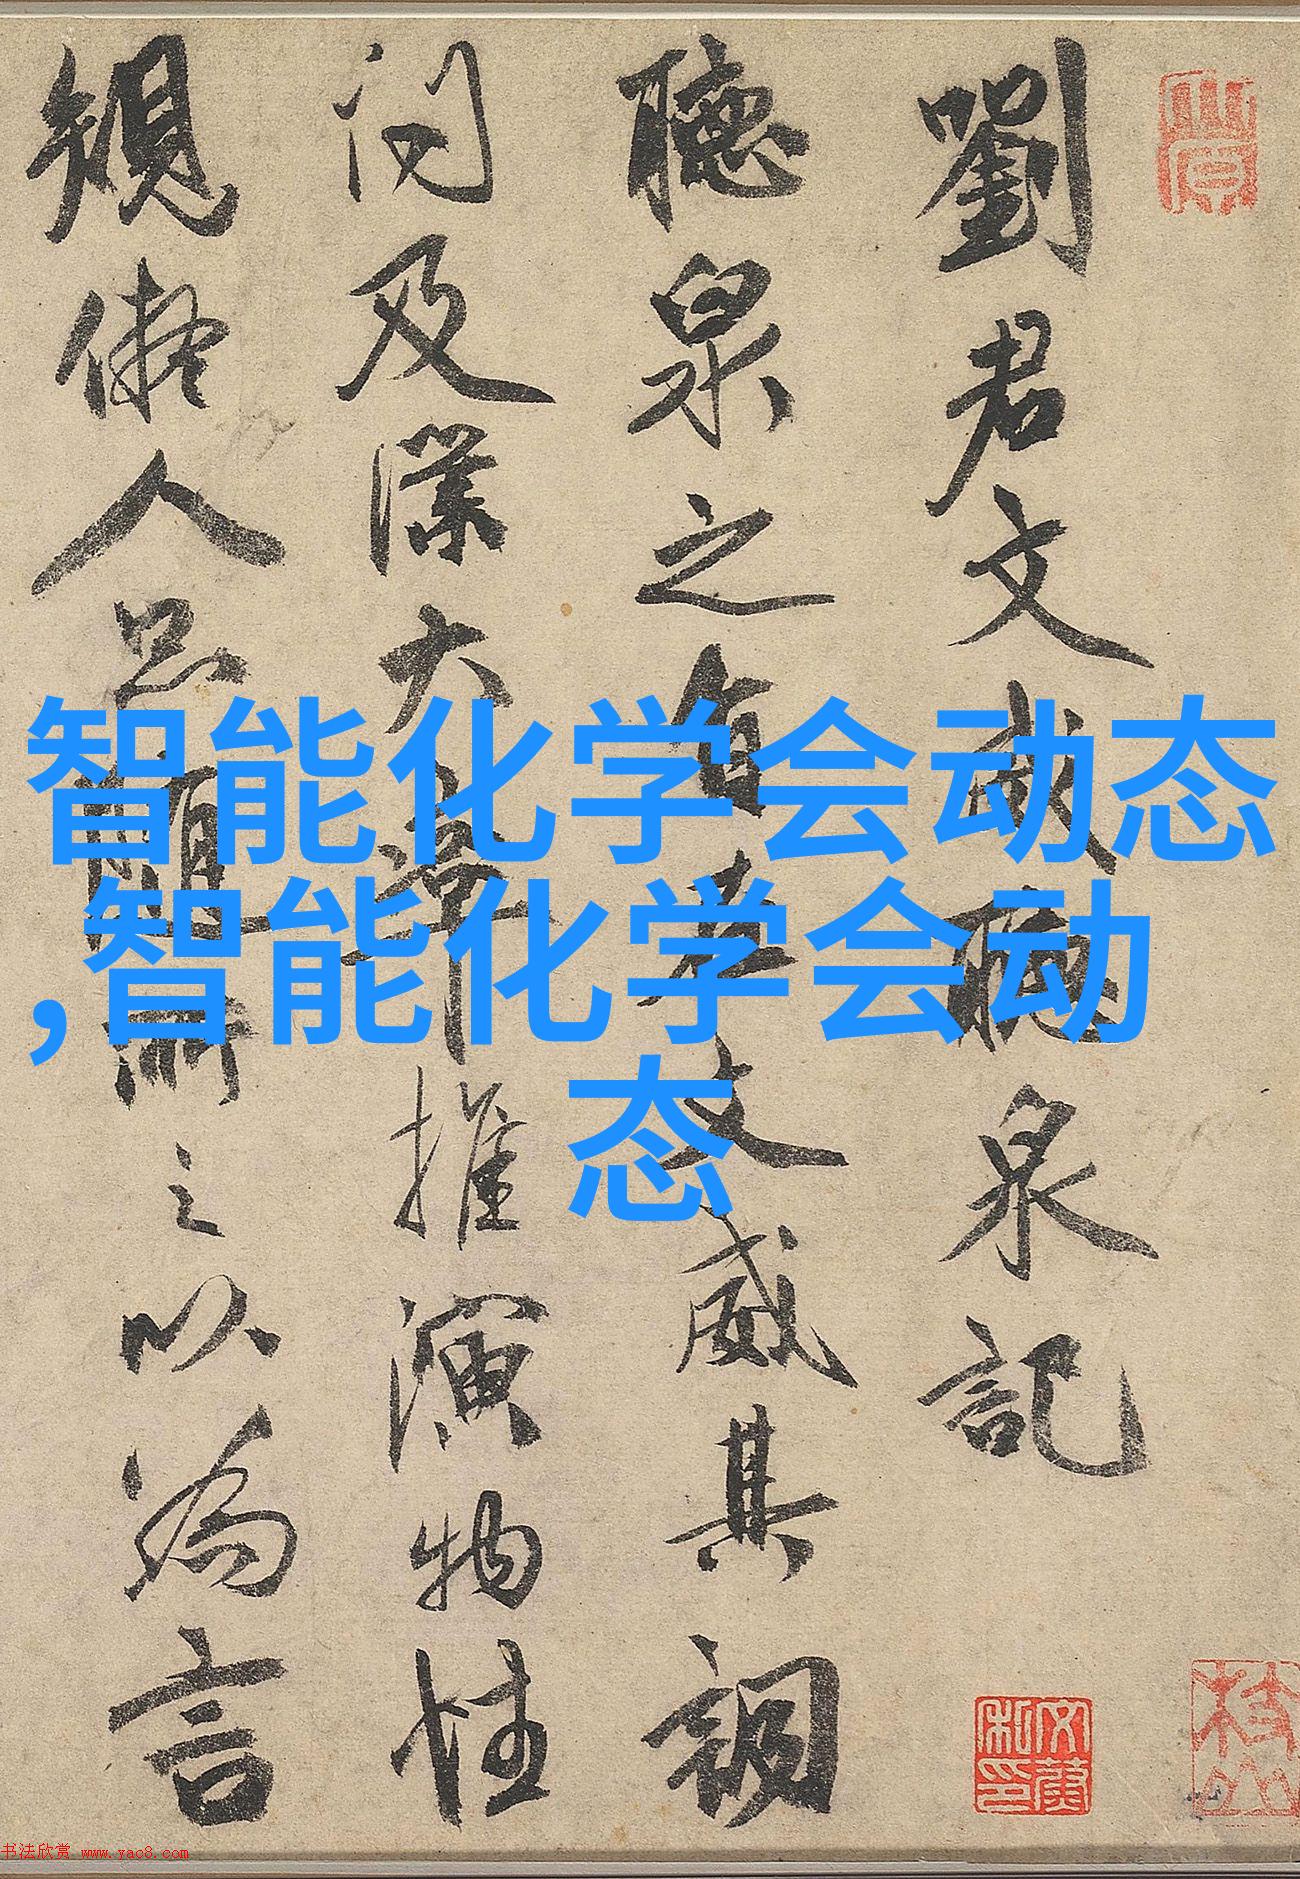 智能化学会动态
,智能化学会动
态
劉君文威聽泉記
聽泉之文威其調
问及深大推演物性
規人品所之以為言
枝山
书法欣赏 www.yac8.com